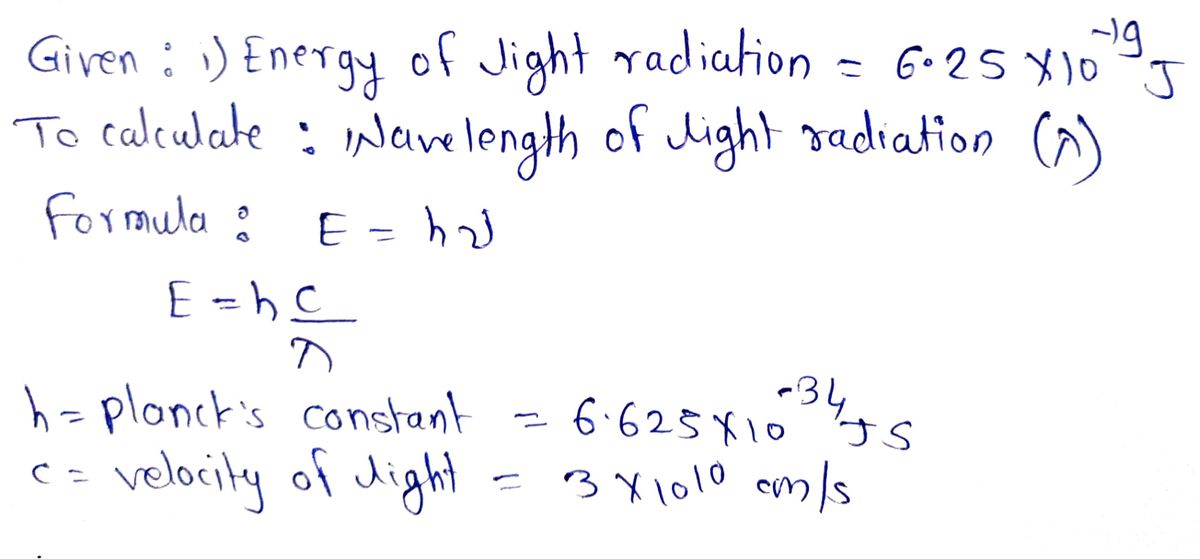 Given : 1) Energy of light radiation = 6.25 × 10⁻¹⁹ J
To calculate : Wavelength of light radiation (λ)
Formula : E = hν
E = h c/λ
h = planck's constant = 6.625 × 10⁻³⁴ J S
c = velocity of light = 3 × 10¹⁰ cm/s